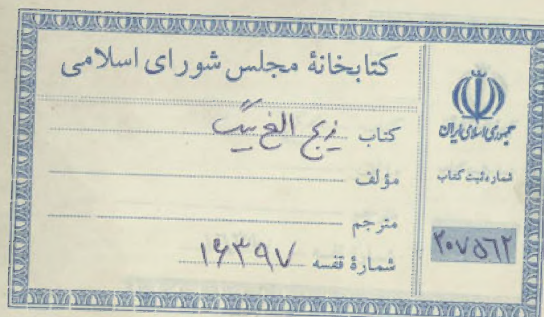 کتابخانهٔ مجلس شورای اسلامی
کتاب زیج الغ بیگ
مؤلف
مترجم
شمارهٔ قفسه ۱۶۳۹۷
جمهوری اسلامی ایران
شماره ثبت کتاب
۲۰۷۵۶۲